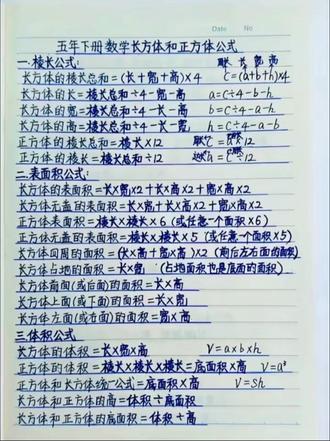 Date No
五年下册数学长方体和正方体公式
一.棱长公式: 长 宽 高
长方体的棱长总和=(长+宽+高)×4 C=(a+b+h)×4
长方体的长=棱长总和÷4-宽-高 a=C÷4-b-h
长方体的宽=棱长总和÷4-长-高 b=C÷4-a-h
长方体的高=棱长总和÷4-长-宽 h=C÷4-a-b
正方体的棱长总和=棱长×12
正方体的棱长=棱长总和÷12
二.表面积公式:
长方体的表面积=长×宽×2+长×高×2+宽×高×2
长方体无盖的表面积=长×宽+长×高×2+宽×高×2
正方体表面积=棱长×棱长×6(或任意一个面积×6)
正方体无盖的表面积=棱长×棱长×5(或任意一个面积×5)
长方体四周的面积=(长×高+宽×高)×2(前后左右面的面积)
长方体占地的面积=长×宽 (占地面积也是底面的面积)
长方体前面(或后面)的面积=长×高
长方体上面(或下面)的面积=长×宽
长方体左面(或右面)的面积=宽×高
三.体积公式
长方体的体积=长×宽×高 V=a×b×h
正方体的体积=棱长×棱长×棱长=底面积×高 V=a³
正方体和长方体统一公式=底面积×高 V=Sh
长方体和正方体的高=体积÷底面积
长方体和正方体的底面积=体积÷高